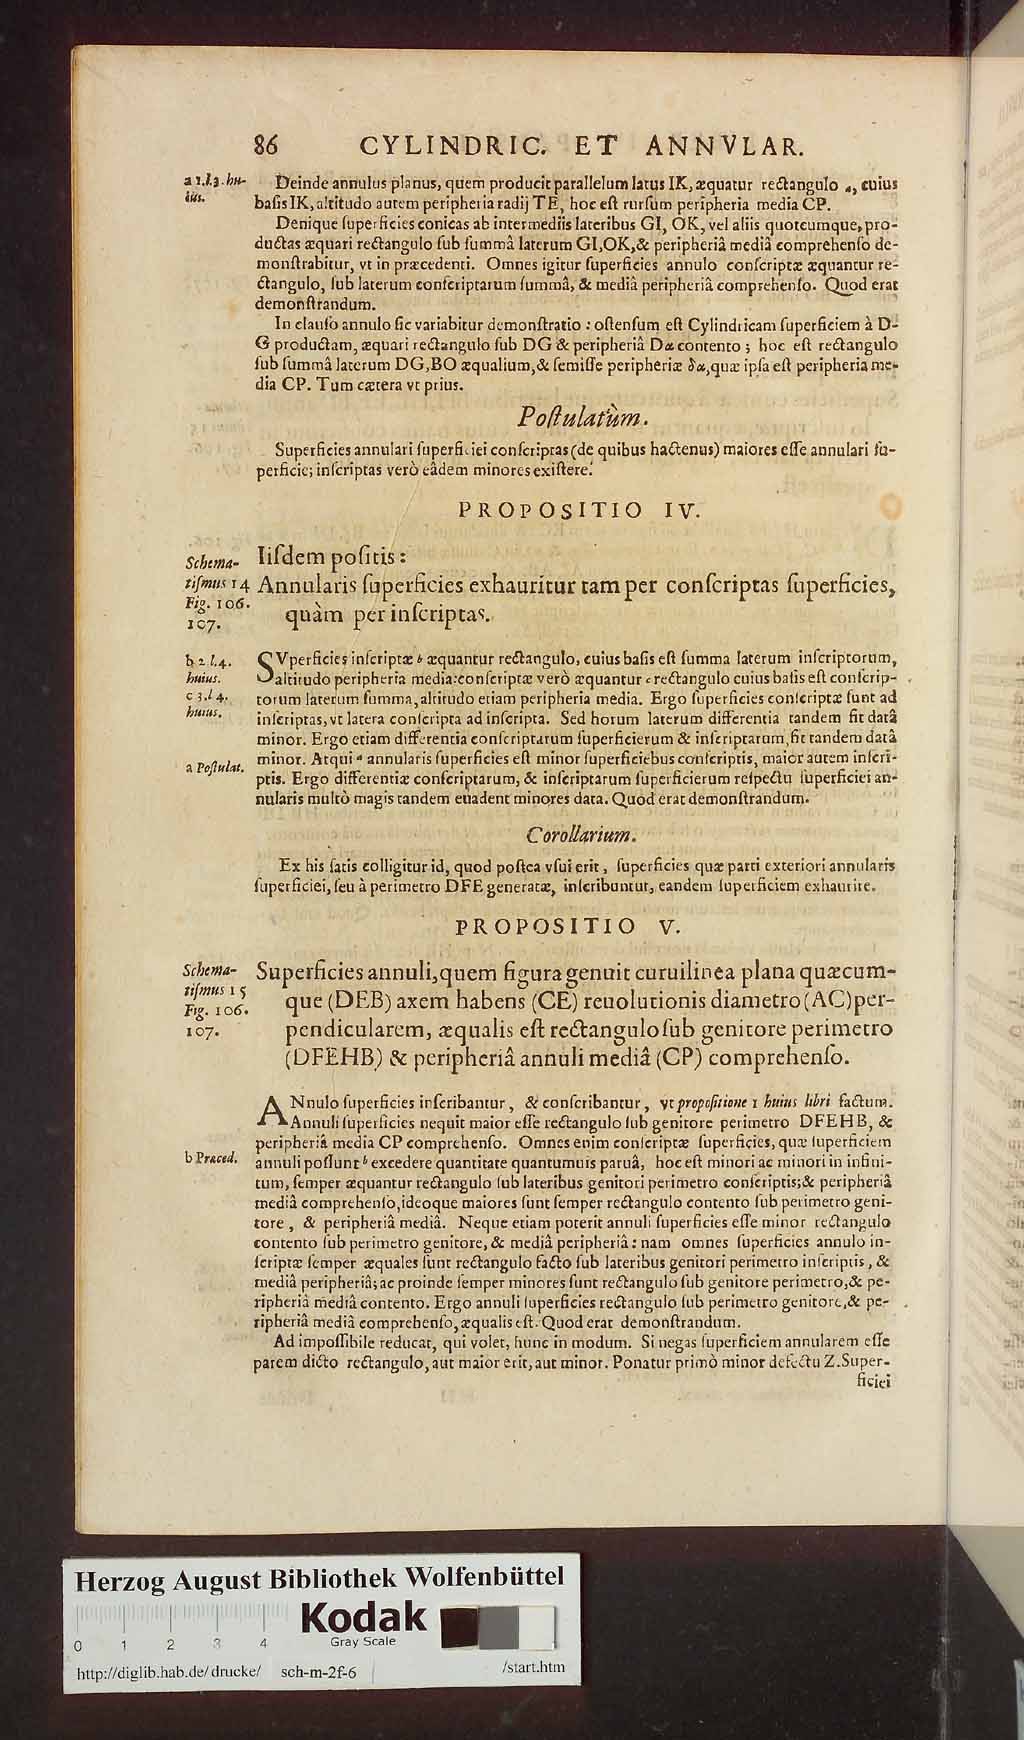 86 CYLINDRIC. ET ANNVLAR.
a 1.l.3.hu-
ius.
Deinde annulus planus, quem producit parallelum latus IK, æquatur rectangulo a, cuius
basis IK, altitudo autem peripheria radij TE, hoc est rursum peripheria media CP.
Denique superficies conicas ab intermediis lateribus GI, OK, vel aliis quotcumque, pro-
ductas æquari rectangulo sub summâ laterum GI,OK,& peripheriâ mediâ comprehenso de-
monstrabitur, vt in præcedenti. Omnes igitur superficies annulo conscriptæ æquantur re-
ctangulo, sub laterum conscriptarum summâ, & mediâ peripheriâ comprehenso. Quod erat
demonstrandum.
In clauso annulo sic variabitur demonstratio : ostensum est Cylindricam superficiem à D-
G productam, æquari rectangulo sub DG & peripheriâ Dα contento ; hoc est rectangulo
sub summâ laterum DG,BO æqualium,& semisse peripheriæ δα,quæ ipsa est peripheria me-
dia CP. Tum cætera vt prius.
Postulatùm.
Superficies annulari superficiei conscriptas (de quibus hactenus) maiores esse annulari su-
perficie; inscriptas verò eâdem minores existere.
PROPOSITIO IV.
Schema-
tismus 14
Fig. 106.
107.
Iisdem positis :
Annularis superficies exhauritur tam per conscriptas superficies,
quàm per inscriptas.
b 2 l.4.
huius.
c 3.l 4.
huius.
a Postulat.
SVperficies inscriptæ b æquantur rectangulo, cuius basis est summa laterum inscriptorum,
altitudo peripheria media:conscriptæ verò æquantur c rectangulo cuius basis est conscrip-
torum laterum summa, altitudo etiam peripheria media. Ergo superficies conscriptæ sunt ad
inscriptas, vt latera conscripta ad inscripta. Sed horum laterum differentia tandem fit datâ
minor. Ergo etiam differentia conscriptarum superficierum & inscriptarum, fit tandem datâ
minor. Atqui a annularis superficies est minor superficiebus conscriptis, maior autem inscri-
ptis. Ergo differentiæ conscriptarum, & inscriptarum superficierum respectu superficiei an-
nularis multò magis tandem euadent minores data. Quod erat demonstrandum.
Corollarium.
Ex his satis colligitur id, quod postea vsui erit, superficies quæ parti exteriori annularis
superficiei, seu à perimetro DFE generatæ, inscribuntur, eandem superficiem exhaurire.
PROPOSITIO V.
Schema-
tismus 15
Fig. 106.
107.
Superficies annuli, quem figura genuit curuilinea plana quæcum-
que (DEB) axem habens (CE) reuolutionis diametro (AC) per-
pendicularem, æqualis est rectangulo sub genitore perimetro
(DFEHB) & peripheriâ annuli mediâ (CP) comprehenso.
b Præced.
ANnulo superficies inscribantur, & conscribantur, vt propositione 1 huius libri factum.
Annuli superficies nequit maior esse rectangulo sub genitore perimetro DFEHB, &
peripheriâ media CP comprehenso. Omnes enim conscriptæ superficies, quæ superficiem
annuli possunt b excedere quantitate quantumuis paruâ, hoc est minori ac minori in infini-
tum, semper æquantur rectangulo sub lateribus genitori perimetro conscriptis;& peripheriâ
mediâ comprehenso, ideoque maiores sunt semper rectangulo contento sub perimetro geni-
tore, & peripheriâ mediâ. Neque etiam poterit annuli superficies esse minor rectangulo
contento sub perimetro genitore, & mediâ peripheriâ : nam omnes superficies annulo in-
scriptæ semper æquales sunt rectangulo facto sub lateribus genitori perimetro inscriptis, &
mediâ peripheriâ; ac proinde semper minores sunt rectangulo sub genitore perimetro,& pe-
ripheriâ mediâ contento. Ergo annuli superficies rectangulo sub perimetro genitore,& pe-
ripheriâ mediâ comprehenso, æqualis est. Quod erat demonstrandum.
Ad impossibile reducat, qui volet, hunc in modum. Si negas superficiem annularem esse
parem dicto rectangulo, aut maior erit, aut minor. Ponatur primò minor defectu Z. Super-
ficiei
Herzog August Bibliothek Wolfenbüttel
Kodak
Gray Scale
0 1 2 3 4
http://diglib.hab.de/drucke/ sch-m-2f-6 /start.htm